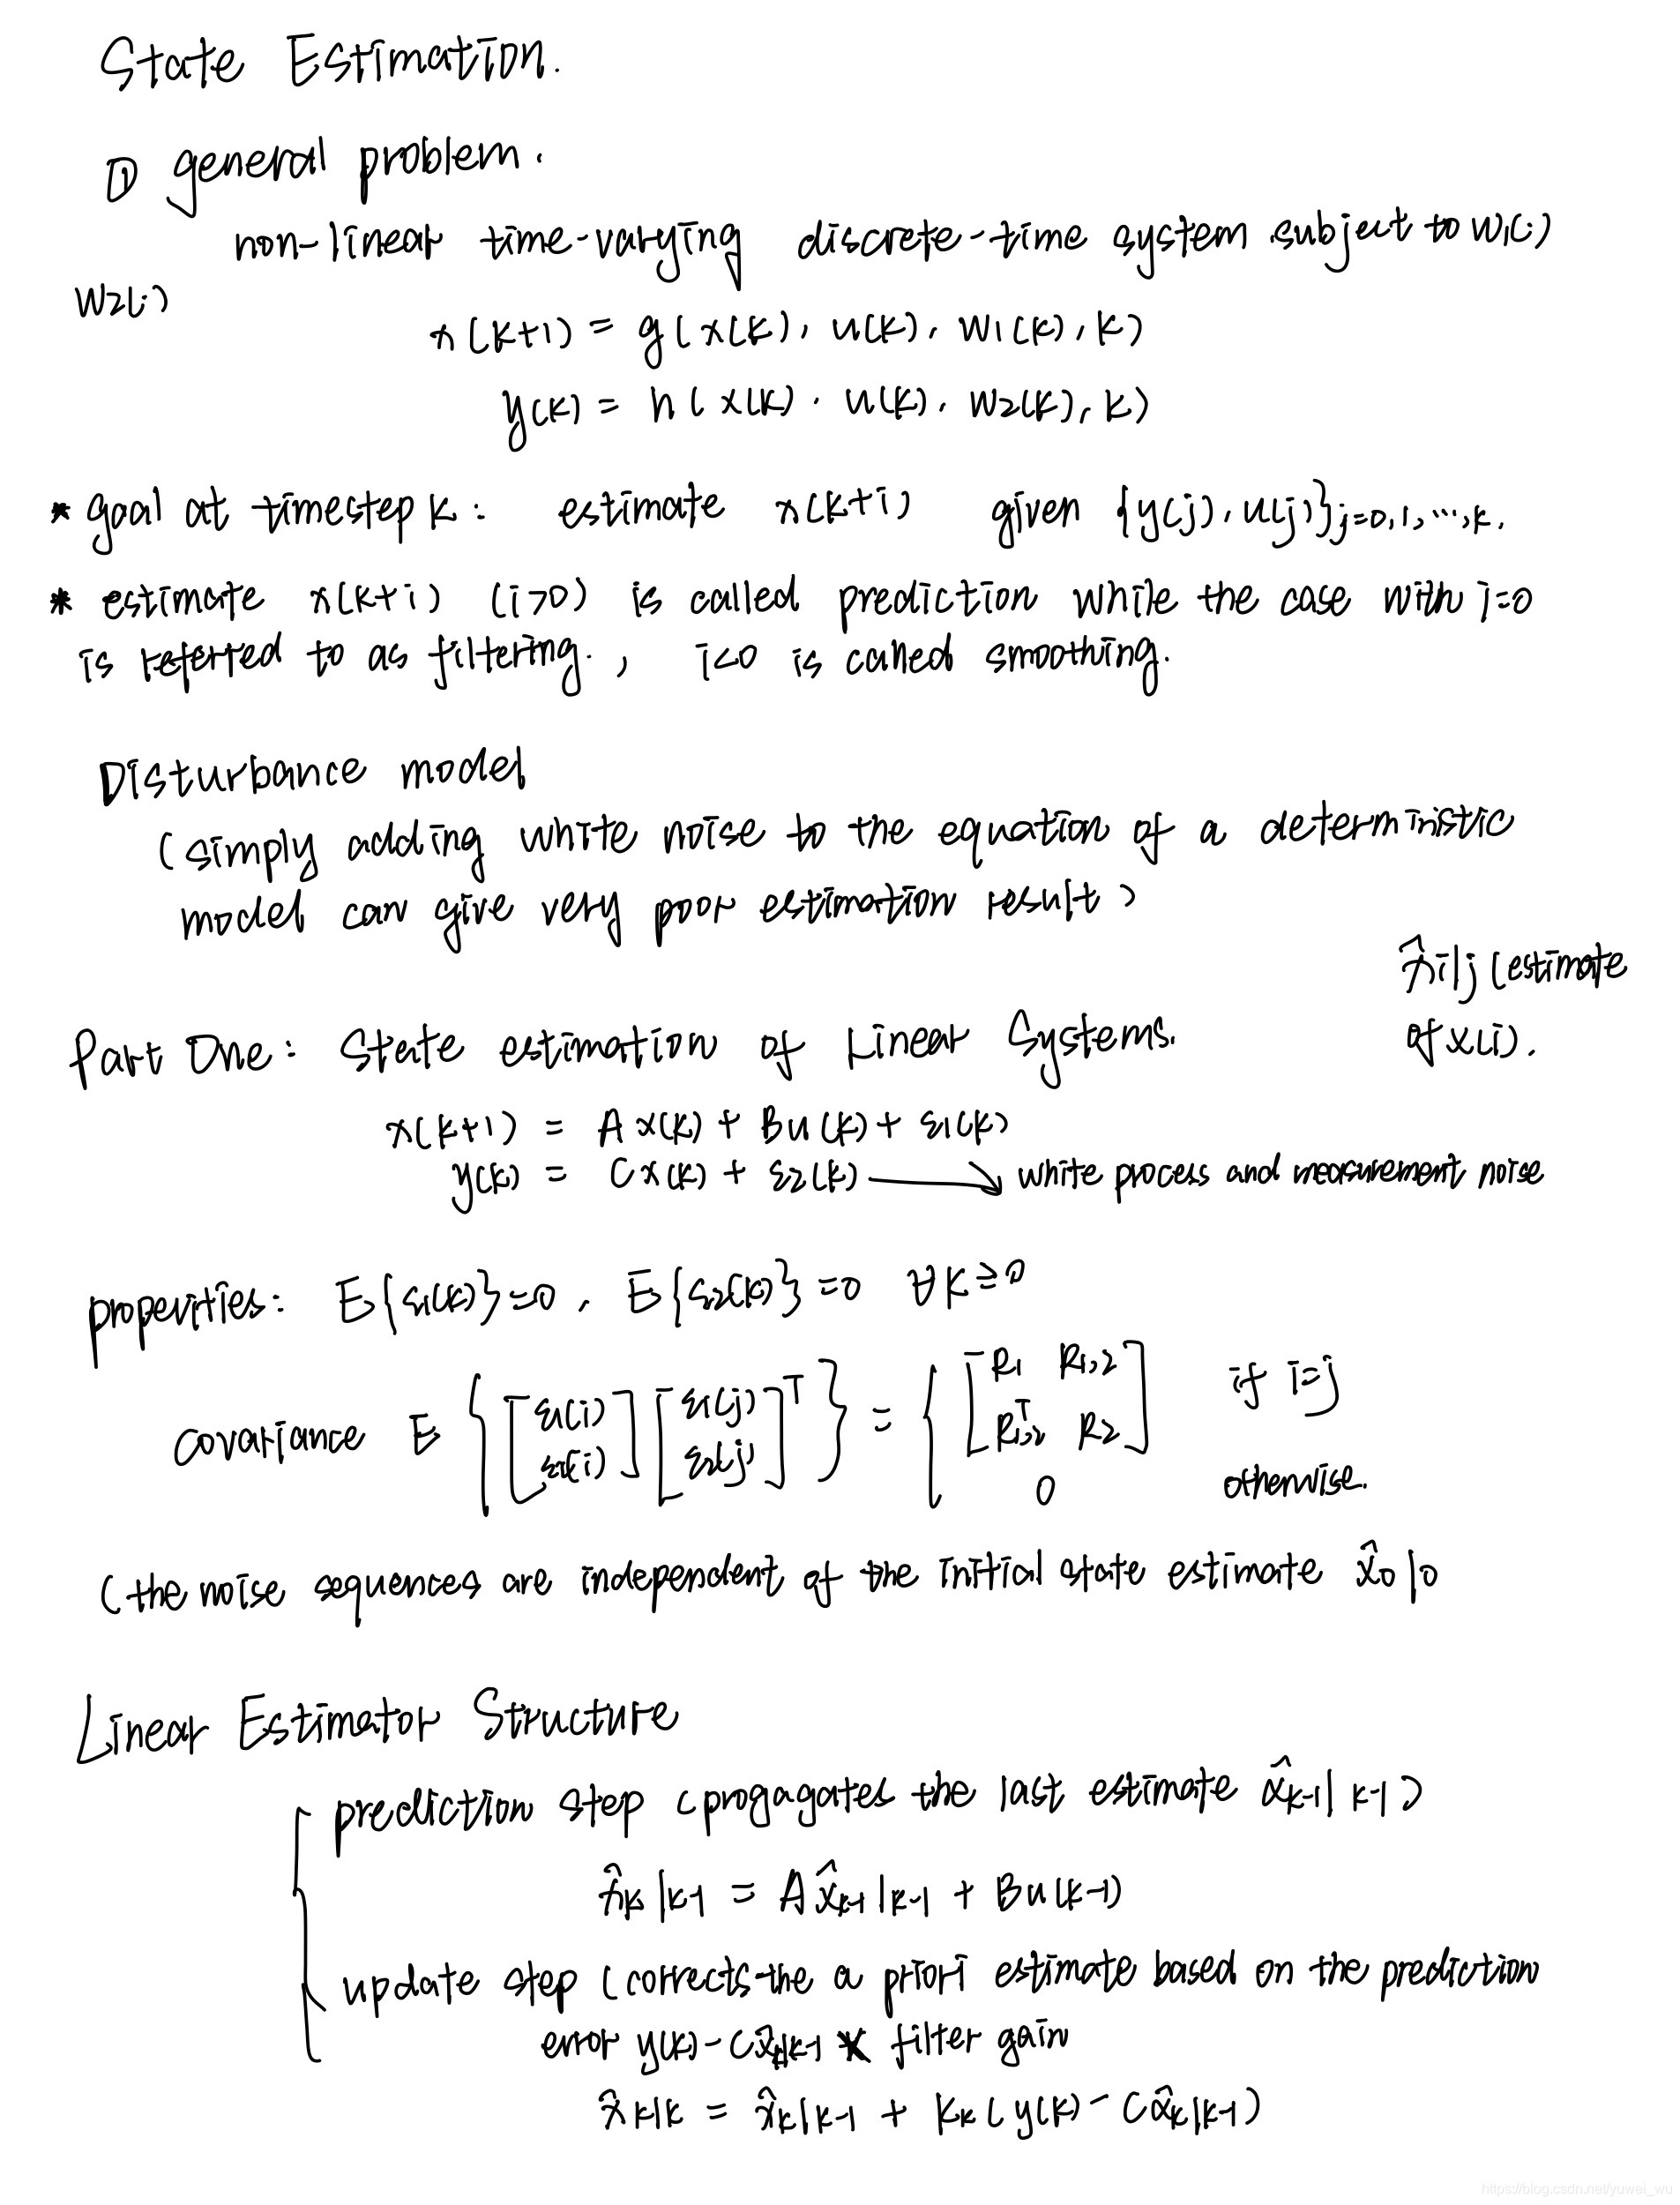 State Estimation.
① general problem.
non-linear time-varying discrete-time system subject to w1(·)
w2(·)
x(k+1) = g(x(k), u(k), w1(k), k)
y(k) = h(x(k), u(k), w2(k), k)
* goal at timestep k: estimate x(k+i) given {y(j), u(j)}j=0,1,…,k.
* estimate x(k+i) (i>0) is called prediction while the case with i=0
is referred to as filtering., i<0 is called smoothing.
Disturbance model
(simply adding white noise to the equation of a deterministic
model can give very poor estimation result)
x̂i|j (estimate
of x(i).
Part One: State estimation of Linear Systems.
x(k+1) = Ax(k) + Bu(k) + ε1(k)
y(k) = Cx(k) + ε2(k) → white process and measurement noise
properties: E{ε1(k)}=0, E{ε2(k)}=0 ∀k≥0
covariance E {[ε1(i) ε2(i)] [ε1(j) ε2(j)]ᵀ} = { [R1 R1,2 R1,2ᵀ R2] if i=j
0 otherwise.
(the noise sequences are independent of the initial state estimate x̂0|0
Linear Estimator Structure
prediction step (propagates the last estimate x̂k-1|k-1)
x̂k|k-1 = Ax̂k-1|k-1 + Bu(k-1)
update step (corrects the a priori estimate based on the prediction
error y(k) - Cx̂k|k-1 * filter gain
x̂k|k = x̂k|k-1 + Kk(y(k) - Cx̂k|k-1)
https://blog.csdn.net/yuwei_wu